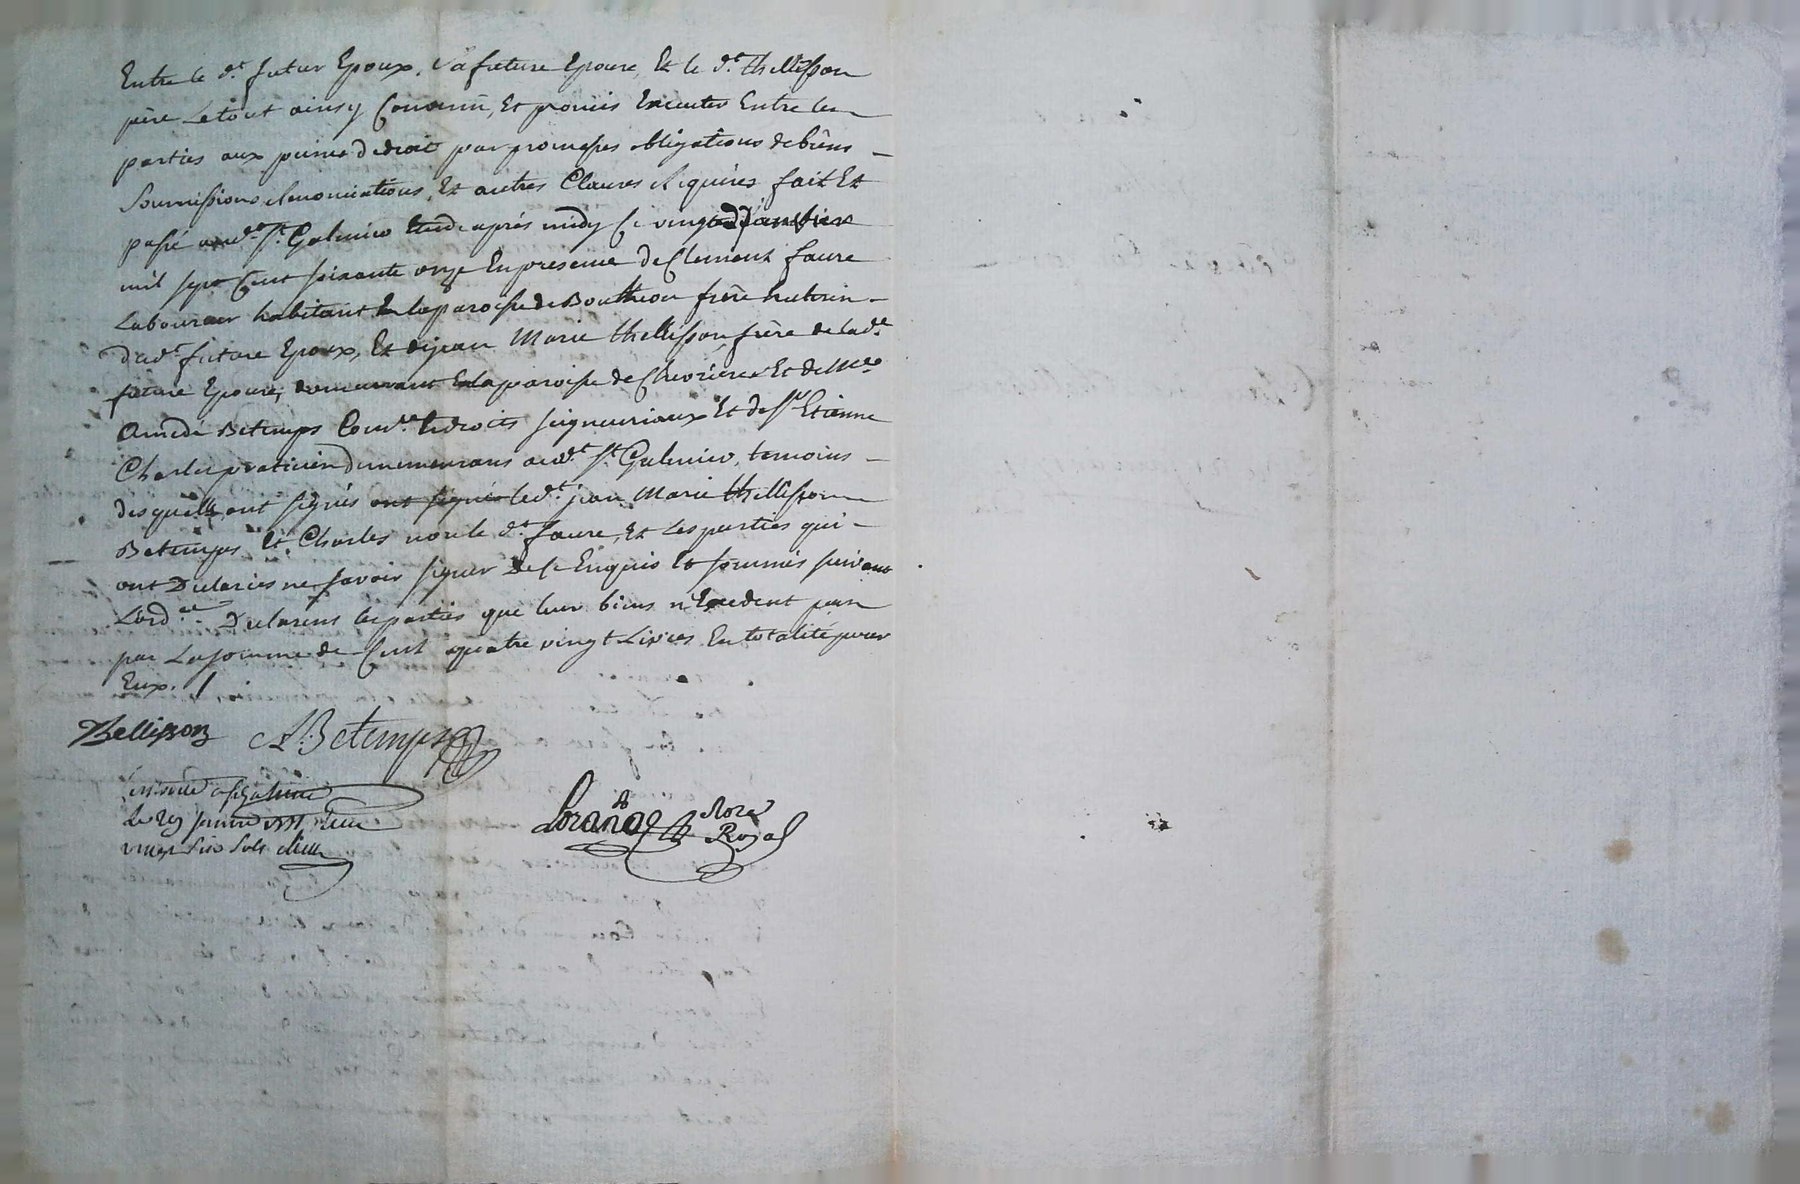 Entre le d.t futur Epoux, la future Epouse, Et le d.t thellisson
père Le tout ainsy Convenü, Et promis Executer Entre les
parties aux peines de droit par promesses obligations de biens
Soumissions Renonciations, Et autres Clauses Requises fait Et
passé aud.t S.t Galmier Etude après midy Ce vingt Janvier
mil sept Cent soixante onze En presence de Clement faure
Laboureur habitant En la paroisse de Bouthéon frère uterin
dud.t futur Epoux, Et de jean Marie thellisson frère de lad.e
future Epouse, demeurant En la paroisse de Chevrières Et de M.re
Amédé Betemps Com.re es droits seigneuriaux Et de S.r Etienne
Charles praticien demeurans aud.t S.t Galmier, temoins
desquels ont signés ont signés led.t jean Marie thellisson
Betemps Et Charles non le d.t faure, Et Les parties qui
ont Declarées ne savoir signer De ce Enquis Et sommés suivant
Lord.ce Declarens les parties que leur biens n'Excedent pas
par La somme de Cent quatre vingt Livres En totalité pour
Eux. /
Thellisson A. Betemps
Le 29 janvier 1771
vingt six sols
Lorange Nore
Royal